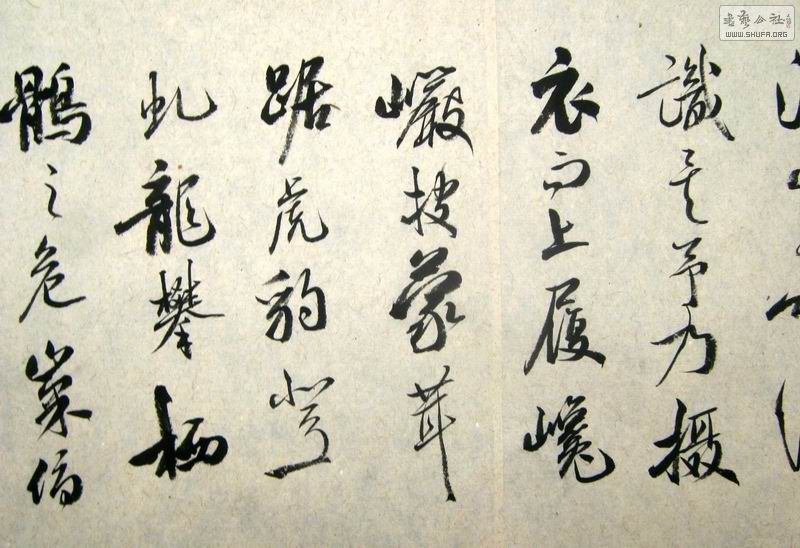 識矣予乃攝
衣而上履巉
巖披蒙茸
踞虎豹登
虬龍攀栖
鶻之危巢俯
書藝公社
WWW.SHUFA.ORG